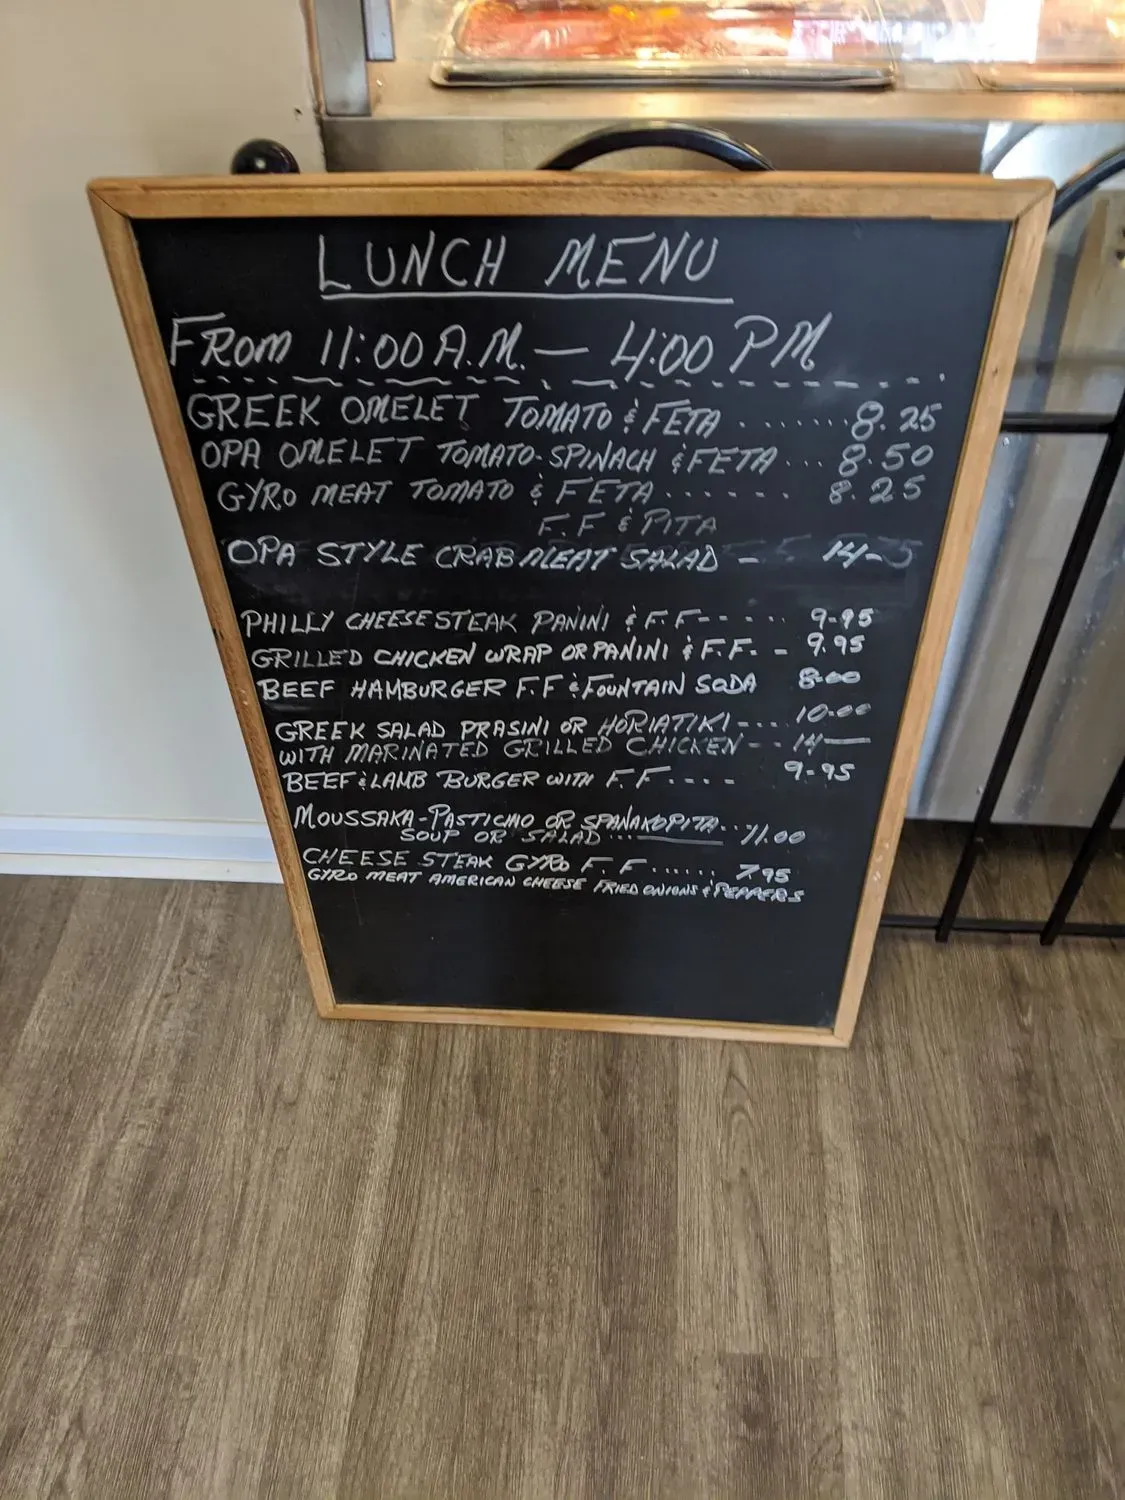 LUNCH MENU
FROM 11:00 A.M. — 4:00 PM
GREEK OMELET TOMATO & FETA ....... 8.25
OPA OMELET TOMATO-SPINACH & FETA ... 8.50
GYRO MEAT TOMATO & FETA ...... 8.25
F.F & PITA
OPA STYLE CRABMEAT SALAD - 14-
PHILLY CHEESESTEAK PANINI & F.F----- 9-95
GRILLED CHICKEN WRAP OR PANINI & F.F. - 9.95
BEEF HAMBURGER F.F & FOUNTAIN SODA 8-00
GREEK SALAD PRASINI OR HORIATIKI---- 10-00
WITH MARINATED GRILLED CHICKEN-- 14—
BEEF & LAMB BURGER WITH F.F.---- 9-95
MOUSSAKA-PASTICHIO OR SPANAKOPITA... 11.00
SOUP OR SALAD...
CHEESE STEAK GYRO F.F ...... 795
GYRO MEAT AMERICAN CHEESE FRIED ONIONS & PEPPERS